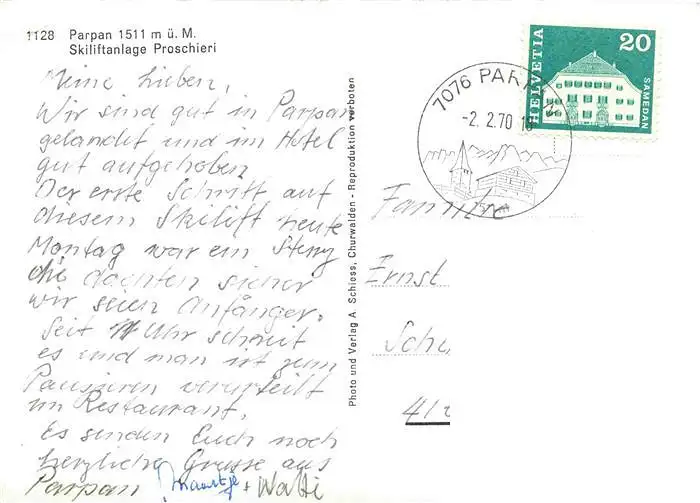 1128 Parpan 1511 m ü. M.
Skiliftanlage Proschieri
Meine Lieben,
Wir sind gut in Parpan
gelandet und im Hotel
gut aufgehoben.
Der erste Schritt auf
diesem Skilift heute
Montag war ein Sturz
die dachten sicher
wir seien Anfänger.
Seit 11 Uhr schneit
es und man ist zum
Pausieren verurteilt
im Restaurant.
Es senden Euch noch
herzliche Grüsse aus
Parpan Maartje + Walti
Photo und Verlag A. Schloss, Churwalden - Reproduktion verboten
7076 PARPAN
-2. 2.70
HELVETIA
20
SAMEDAN
Familie
Ernst
Sch